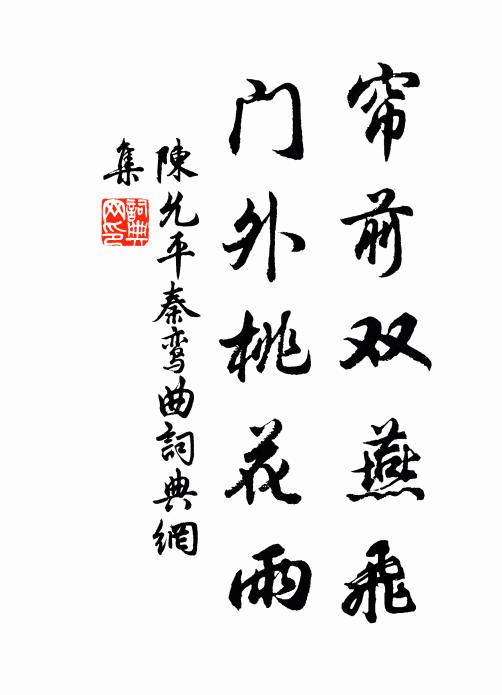 帘前双燕飛
门外桃花雨
陳允平秦鸾曲詞典網
集
詞典网印